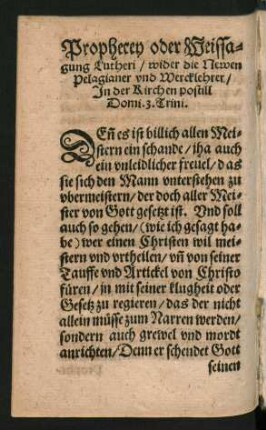 Propherey oder Weissa-
gung Lutheri / wider die Newen
Pelagianer vnd Wercklehrer /
In der Kirchen postill
Domi. 3. Trini.
DEñ es ist billich allen Mei-
stern ein schande / iha auch
ein vnleidlicher freuel / das
sie sich den Mann vnterstehen zu
vbermeistern / der doch aller Mei-
ster von Gott gesetzt ist. Vnd soll
auch so gehen / (wie ich gesagt ha-
be) wer einen Christen wil mei-
stern vnd vrtheilen / vñ von seiner
Tauffe vnd Artickel von Christo
füren / in mit seiner klugheit oder
Gesetz zu regieren / das der nicht
allein müsse zum Narren werden /
sondern auch grewel vnd mordt
anrichten / Denn er schendet Gott
seinen